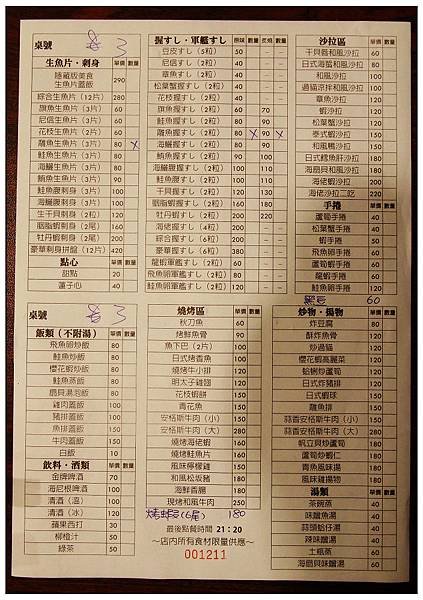 桌號 3
生魚片・刺身 單價 數量
隱藏版美食
生魚片蓋飯 290
綜合生魚片(12片) 280
旗魚生魚片(3片) 60
尼信生魚片(3片) 60
花枝生魚片(2片) 60
鮭魚生魚片(3片) 80
海鱺生魚片(3片) 80
鮪魚生魚片(3片) 90
鮭魚腹刺身(3片) 100
生干貝刺身(2粒) 120
胭脂蝦刺身(2尾) 200
牡丹蝦刺身(2尾) 220
豪華刺身拼盤(12片) 420
點心 單價 數量
甜點 20
蓮子心 40
握すし・軍艦すし 原味 數量 炙燒 數量
豆皮すし(5粒) 50
尼信すし(2粒) 40
章魚すし(2粒) 40
松葉蟹握すし(2粒) 40
花枝握すし(2粒) 40
旗魚握すし(2粒) 60 70
鮭魚握すし(2粒) 80 90
海鱺握すし(2粒) 80 90
鮪魚握すし(2粒) 90 100
鮭魚腹すし(2粒) 100 110
干貝握すし(2粒) 120 130
胭脂蝦握すし(2粒) 180 200
牡丹蝦握すし(2粒) 200 220
海膽握すし(2粒) 160
綜合握すし(6粒) 200
豪華握すし(6粒) 380
龍蝦軍艦すし(2粒) 60
飛魚卵軍艦すし(2粒) 60
鮭魚卵軍艦すし(2粒) 120
沙拉區 單價 數量
干貝唇和風沙拉 60
日式海蜇和風沙拉 60
和風沙拉
過貓涼拌和風沙拉
章魚沙拉
蝦沙拉
松葉蟹沙拉
泰式蝦沙拉
和風鴨沙拉
日式鱈魚肝沙拉 180
海扇貝和風沙拉 180
海佬蝦沙拉 200
海佬沙拉二吃 220
手捲 單價 數量
蘆筍手捲 40
松葉蟹手捲 40
蝦手捲
飛魚卵手捲 60
蘆筍蝦手捲 60
龍蝦手捲 60
鮭魚卵手捲
60
桌號 3
飯類(不附湯) 單價 數量
飛魚卵炒飯 80
鮭魚炒飯 80
櫻花蝦炒飯 80
鮭魚蒸飯 80
扇貝湯泡飯 80
雞肉蓋飯 100
豬排蓋飯 100
魚排蓋飯 150
牛肉蓋飯 150
白飯 10
飲料・酒類 單價 數量
金牌啤酒 70
海尼根啤酒 100
清酒(溫) 100
清酒(冰) 120
蘋果西打 30
柳橙汁 50
綠茶 50
燒烤區 單價 數量
秋刀魚 60
烤鮮魚骨 90
魚下巴(2片) 100
日式烤香魚 100
燒烤牛小排 120
明太子雞翅 120
花枝蝦餅 150
青花魚 150
安格斯牛肉(小) 150
安格斯牛肉(大) 280
燒烤海佬蝦 150
燒烤鮭魚片 150
風味檸檬雞 150
和風松坂豬 180
海鮮香腸 180
現烤和風牛肉 250
烤蝦(6尾) 180
炒物・揚物 單價 數量
炸豆腐 80
酥炸魚骨 80
炒過貓 100
櫻花蝦高麗菜 100
蛤蜊炒蘆筍 120
日式炸豬排 120
日式蝦球 150
雞魚排 150
蒜香安格斯牛肉(小) 150
蒜香安格斯牛肉(大) 280
帆立貝炒蘆筍 180
蘆筍炒蝦仁 180
青魚風味揚 180
風味雞揚物 180
湯類 單價 數量
茶碗蒸 40
味噌魚湯 50
蒜頭蛤仔湯 50
辣味噌湯 50
土瓶蒸 60
海扇貝味噌湯 60
最後點餐時間 21:20
～店內所有食材限量供應～
001211